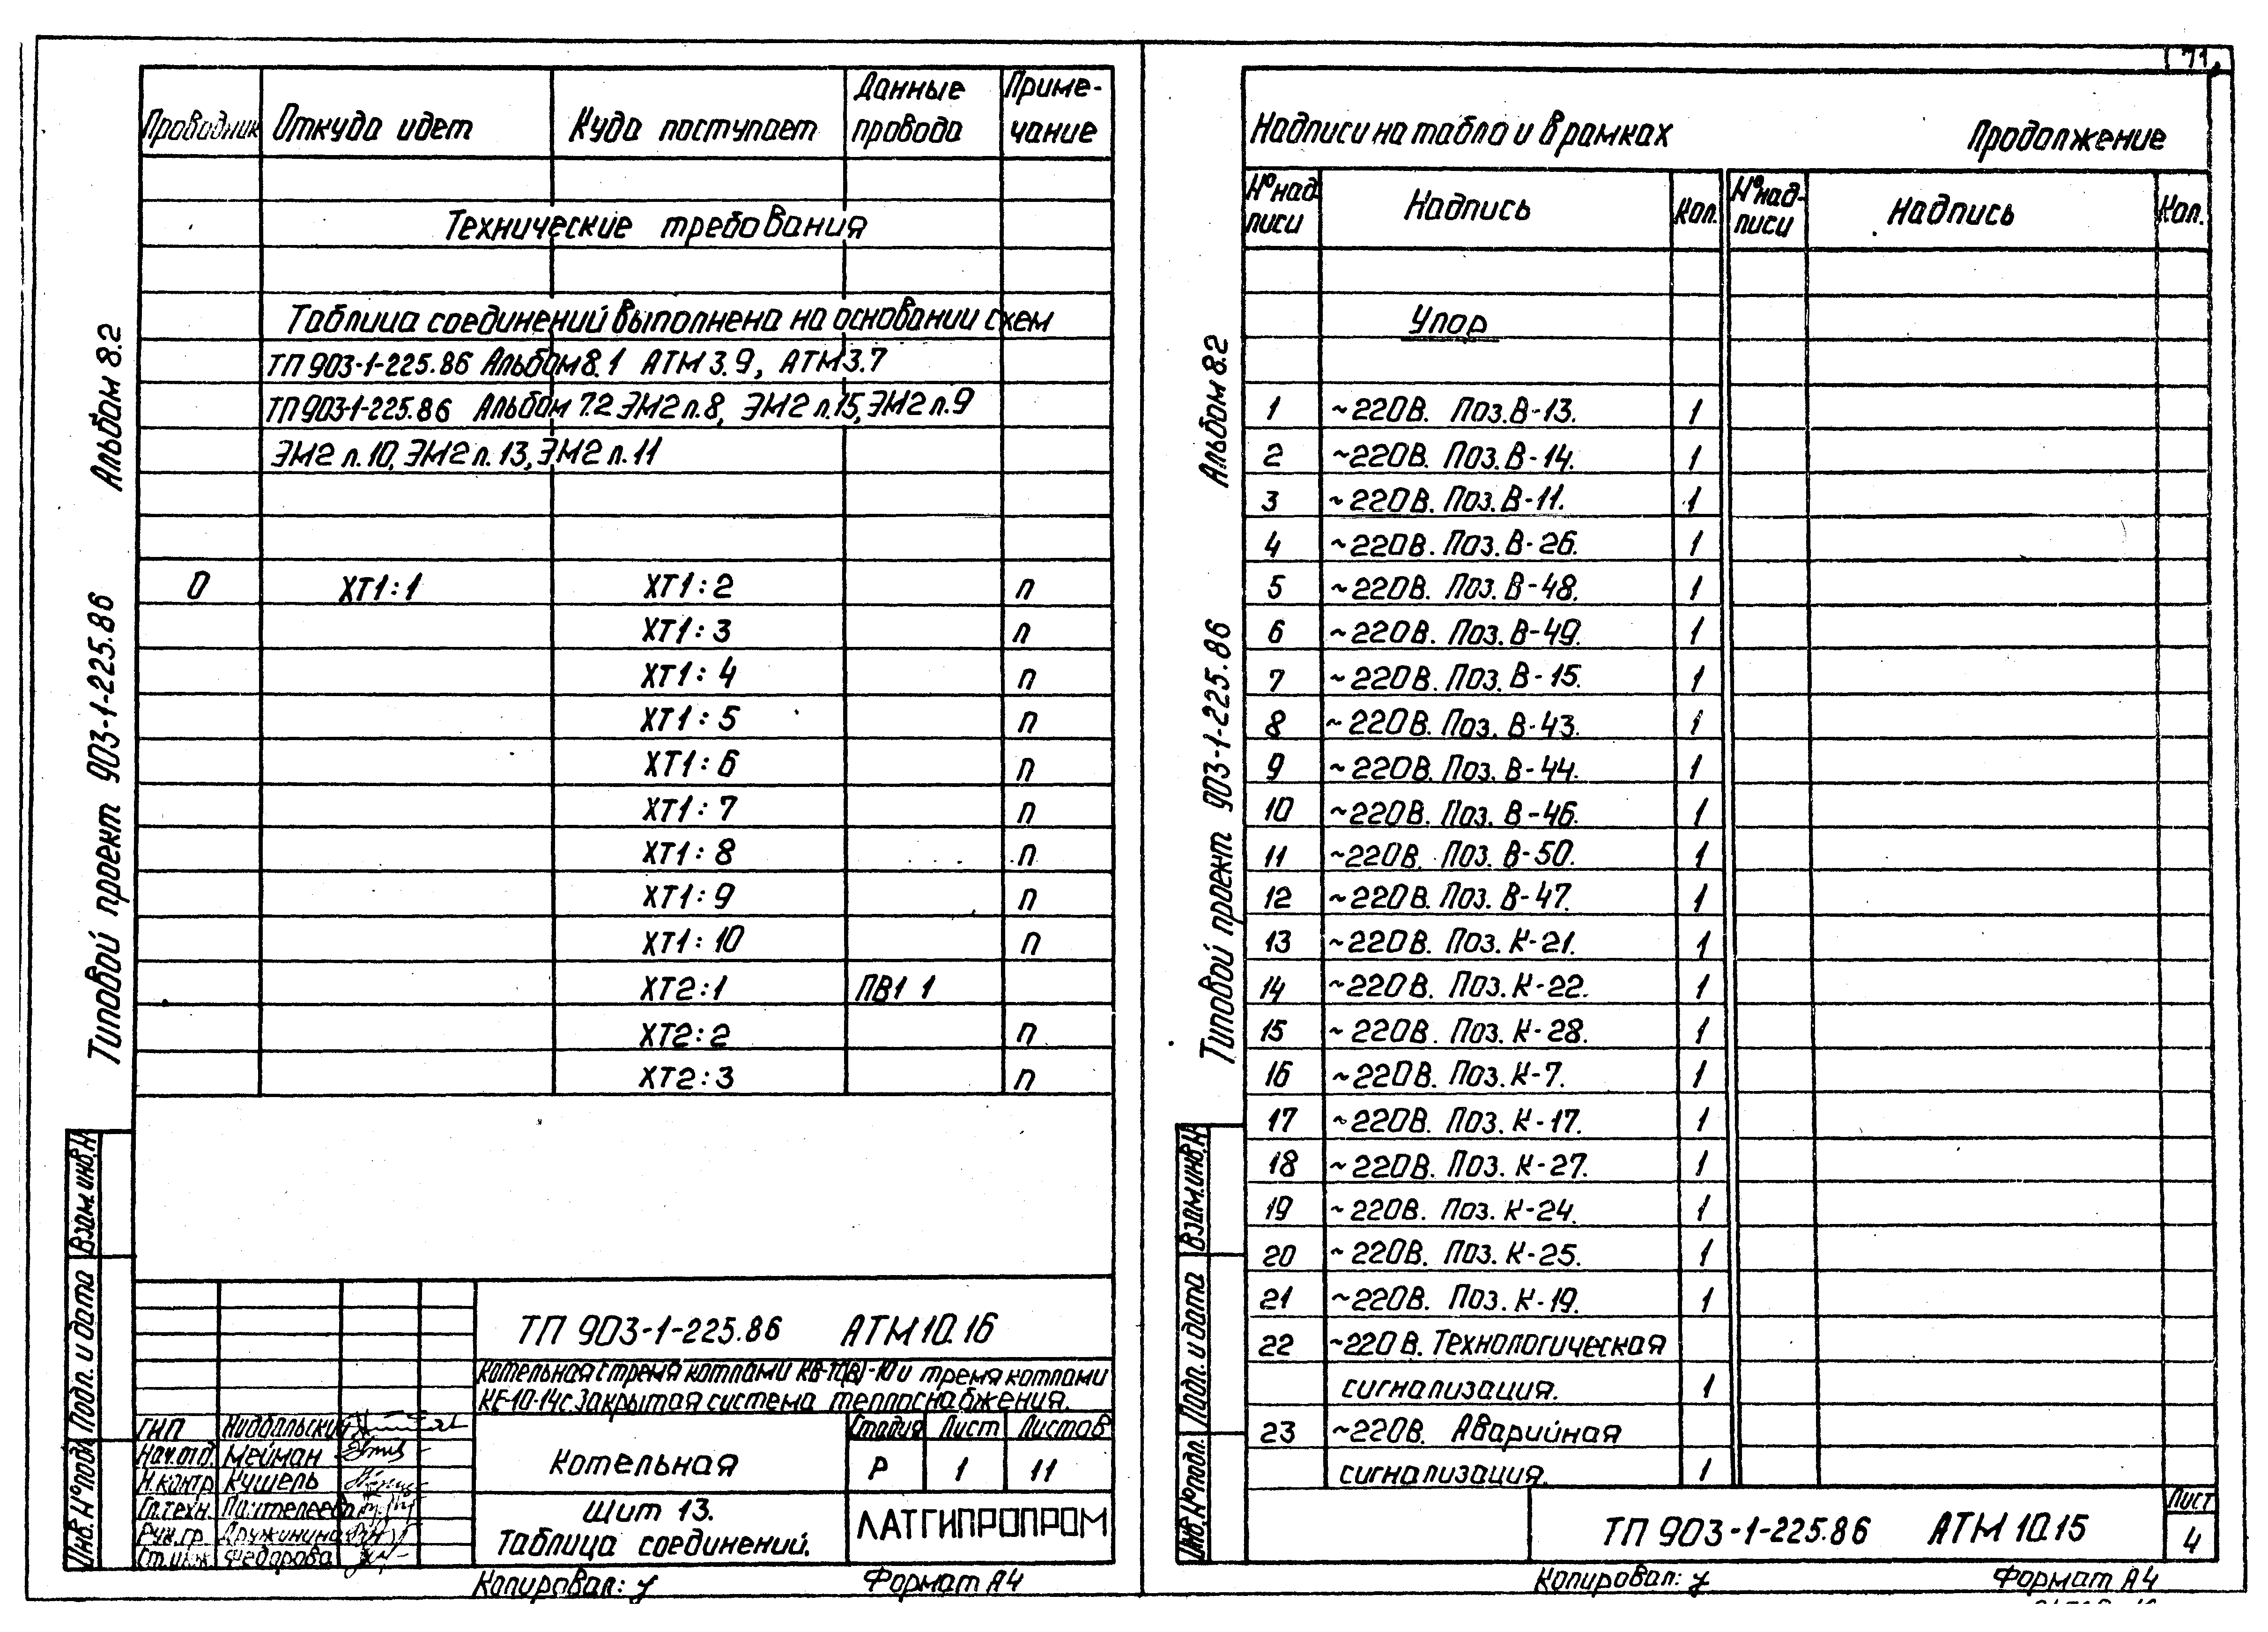 71
Проводник Откуда идет Куда поступает Данные провода Приме-чание
Технические требования
Таблица соединений выполнена на основании схем
ТП 903-1-225.86 Альбом 8.1 АТМ 3.9, АТМ 3.7
ТП 903-1-225.86 Альбом 7.2 ЭМ2 л.8, ЭМ2 л.15, ЭМ2 л.9
ЭМ2 л.10, ЭМ2 л.13, ЭМ2 л.11
0 ХТ1:1 ХТ1:2 п
ХТ1:3 п
ХТ1:4 п
ХТ1:5 п
ХТ1:6 п
ХТ1:7 п
ХТ1:8 п
ХТ1:9 п
ХТ1:10 п
ХТ2:1 ПВ1 1
ХТ2:2 п
ХТ2:3 п
Альбом 8.2
Типовой проект 903-1-225.86
Взам.инв.№
Подп. и дата
Инв.№подл.
ТП 903-1-225.86 АТМ 10.16
Котельная с тремя котлами КВ-Т(В)-10 и тремя котлами
КЕ-10-14с. Закрытая система теплоснабжения.
ГИП
Нач.отд. Мейман
Н.контр Кушель
Гл.техн. Пантелеева
Рук.гр. Дружинина
Ст.инж. Федорова
Котельная
Стадия Лист Листов
Р 1 11
Щит 13.
Таблица соединений.
ЛАТГИПРОПРОМ
Копировал: Формат А4
Надписи на табло и в рамках Продолжение
№ над-писи Надпись Кол. № над-писи Надпись Кол.
Упор
1 ~220В. Поз. В-13. 1
2 ~220В. Поз. В-14. 1
3 ~220В. Поз. В-11. 1
4 ~220В. Поз. В-26. 1
5 ~220В. Поз. В-48. 1
6 ~220В. Поз. В-49. 1
7 ~220В. Поз. В-15. 1
8 ~220В. Поз. В-43. 1
9 ~220В. Поз. В-44. 1
10 ~220В. Поз. В-46. 1
11 ~220В. Поз. В-50. 1
12 ~220В. Поз. В-47. 1
13 ~220В. Поз. К-21. 1
14 ~220В. Поз. К-22. 1
15 ~220В. Поз. К-28. 1
16 ~220В. Поз. К-7. 1
17 ~220В. Поз. К-17. 1
18 ~220В. Поз. К-27. 1
19 ~220В. Поз. К-24. 1
20 ~220В. Поз. К-25. 1
21 ~220В. Поз. К-19. 1
22 ~220В. Технологическая
сигнализация. 1
23 ~220В. Аварийная
сигнализация. 1
Альбом 8.2
Типовой проект 903-1-225.86
Взам.инв.№
Подп. и дата
Инв.№подл.
ТП 903-1-225.86 АТМ 10.15
Лист
4
Копировал: Формат А4